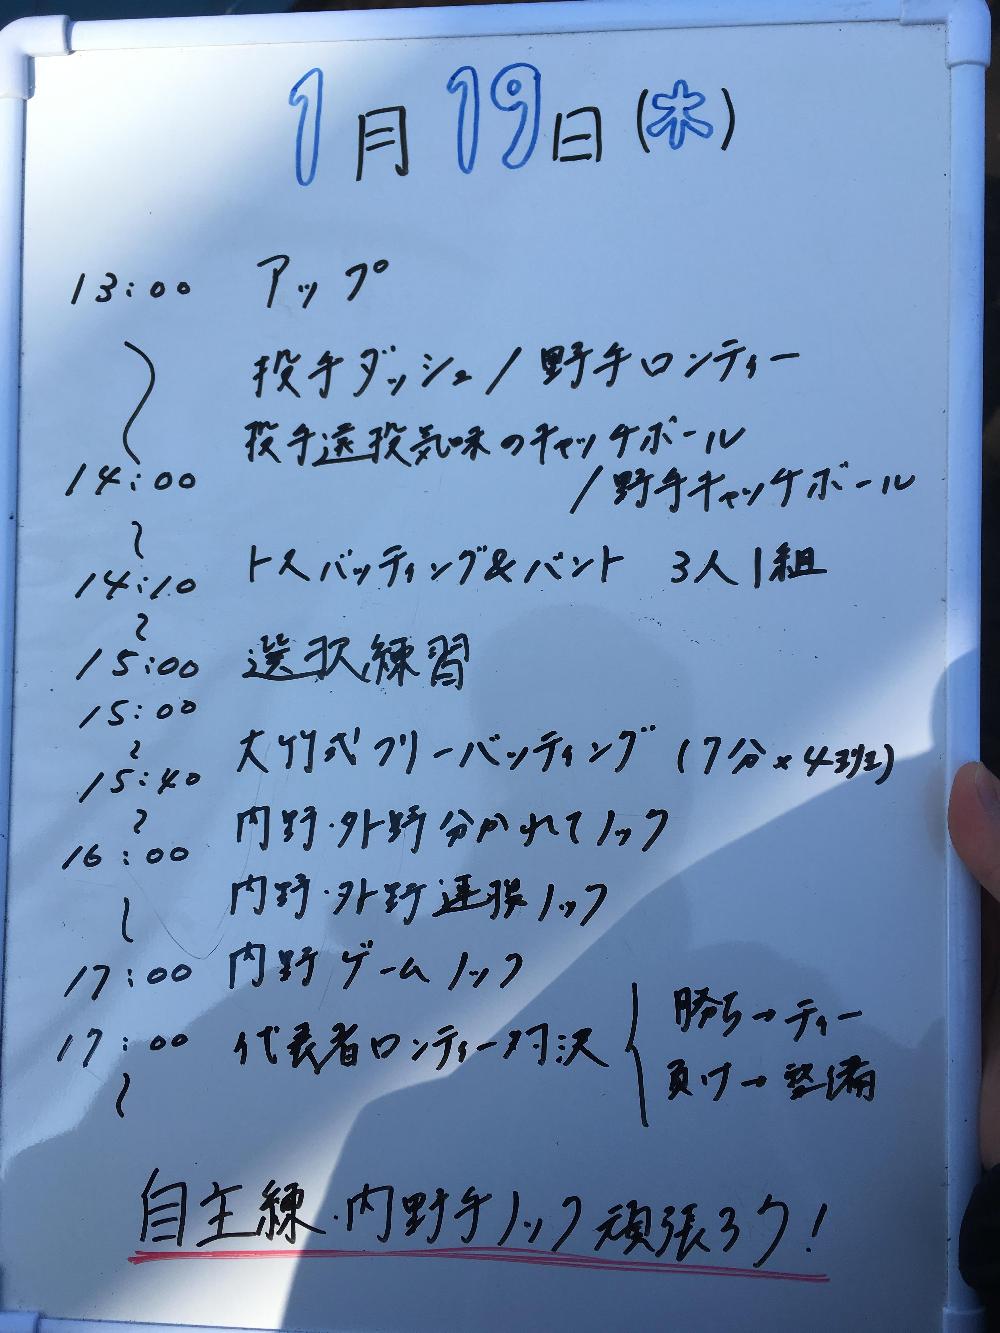 1月19日(木)
13:00 アップ
〜 投手ダッシュ/野手ロンティー
投手遠投気味のキャッチボール
14:00 /野手キャッチボール
〜
14:10 トスバッティング&バント 3人1組
〜
15:00 選択練習
15:00
〜 大竹式フリーバッティング (7分×4班)
15:40
〜 内野・外野分かれてノック
16:00
〜 内野・外野連携ノック
17:00 内野ゲームノック
17:00 代表者ロンティー対決 { 勝ち→ティー
〜 負け→整備
自主練・内野手ノック頑張ろう!